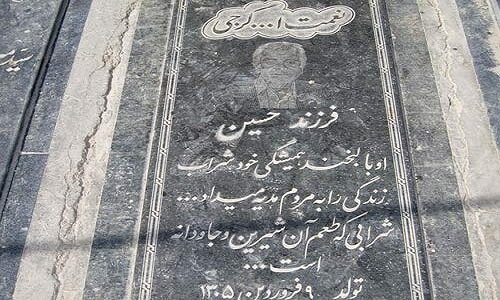 نعمت ا... گرجی
فرزند حسین
او با لبخند همیشگی خود شراب
زندگی را به مردم هدیه میداد...
شرابی که طعم آن شیرین و جاودانه
است...
تولد ۹ فروردین ۱۳۰۵